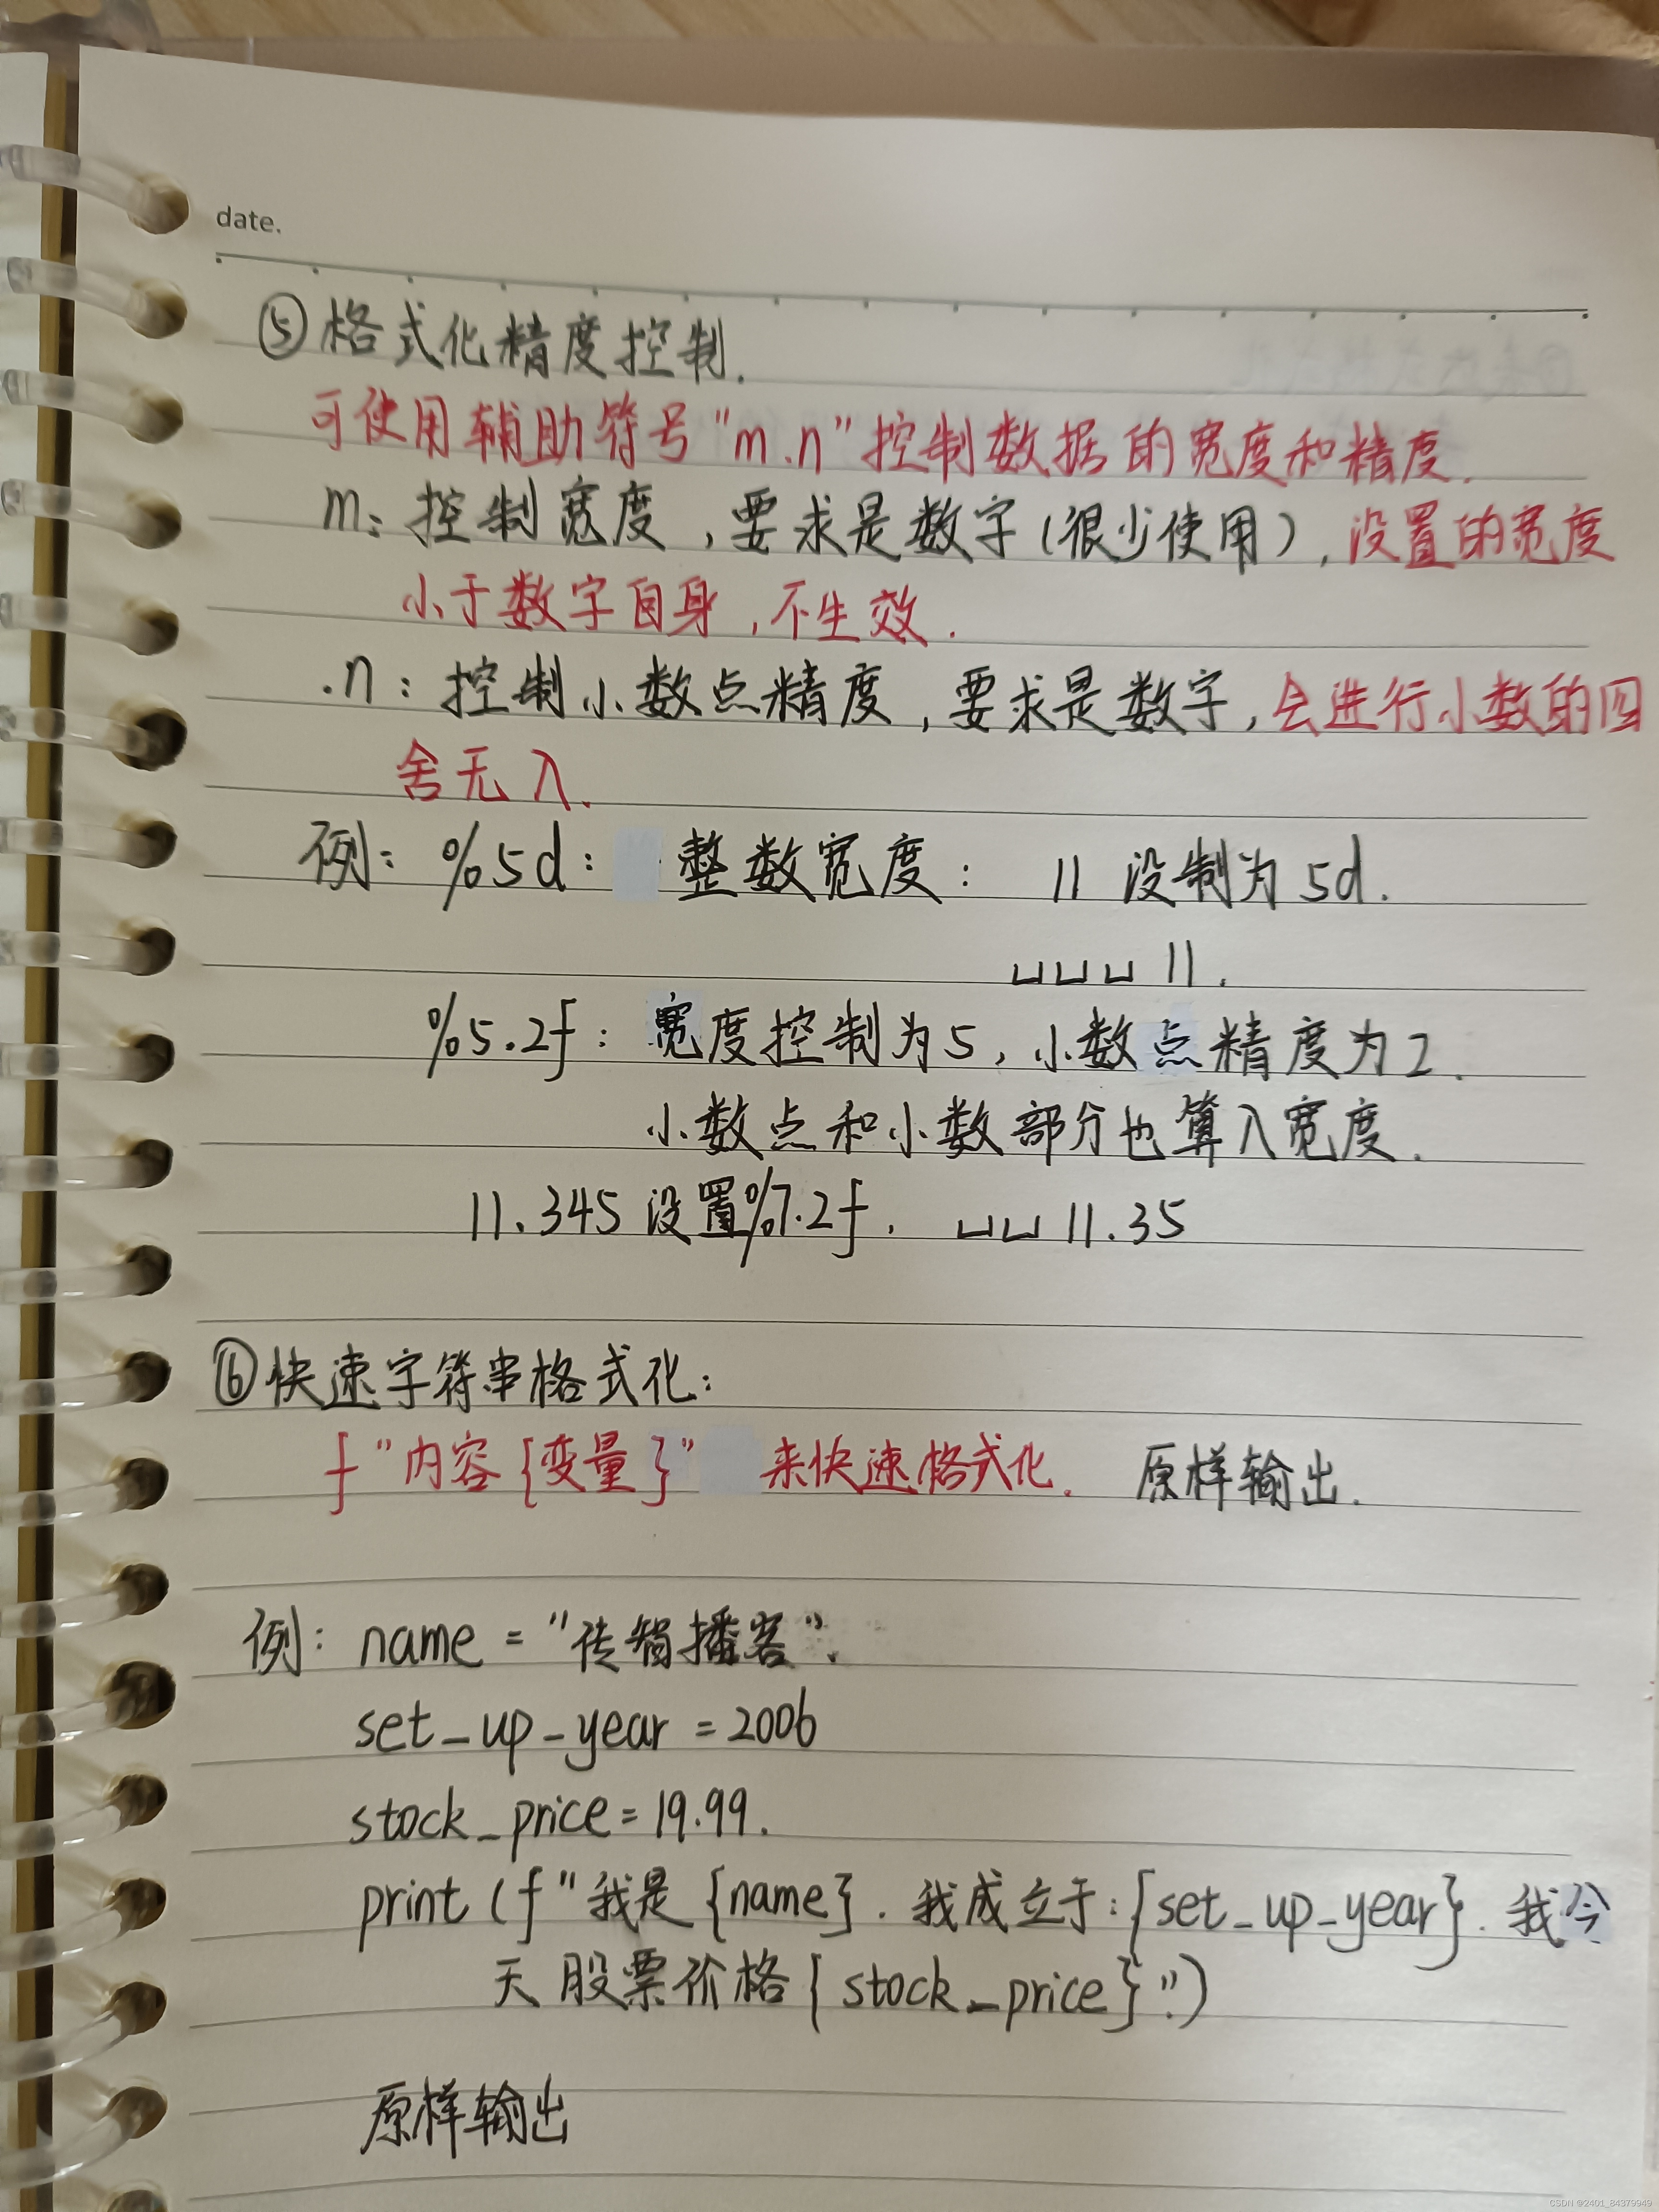 date.
⑤格式化精度控制.
可使用辅助符号"m.n"控制数据的宽度和精度.
m: 控制宽度,要求是数字(很少使用),设置的宽度
小于数字自身,不生效.
.n: 控制小数点精度,要求是数字,会进行小数的四
舍无入.
例: %5d: 整数宽度: 11 设制为5d.
␣␣␣11.
%5.2f: 宽度控制为5,小数点精度为2.
小数点和小数部分也算入宽度.
11.345 设置%7.2f. ␣␣11.35
⑥快速字符串格式化:
f"内容{变量}" 来快速格式化. 原样输出.
例: name = "传智播客".
set_up_year = 2006
stock_price = 19.99.
print (f"我是{name}. 我成立于:{set_up_year}. 我今
天股票价格{stock_price}".)
原样输出
CSDN @2401_84379949